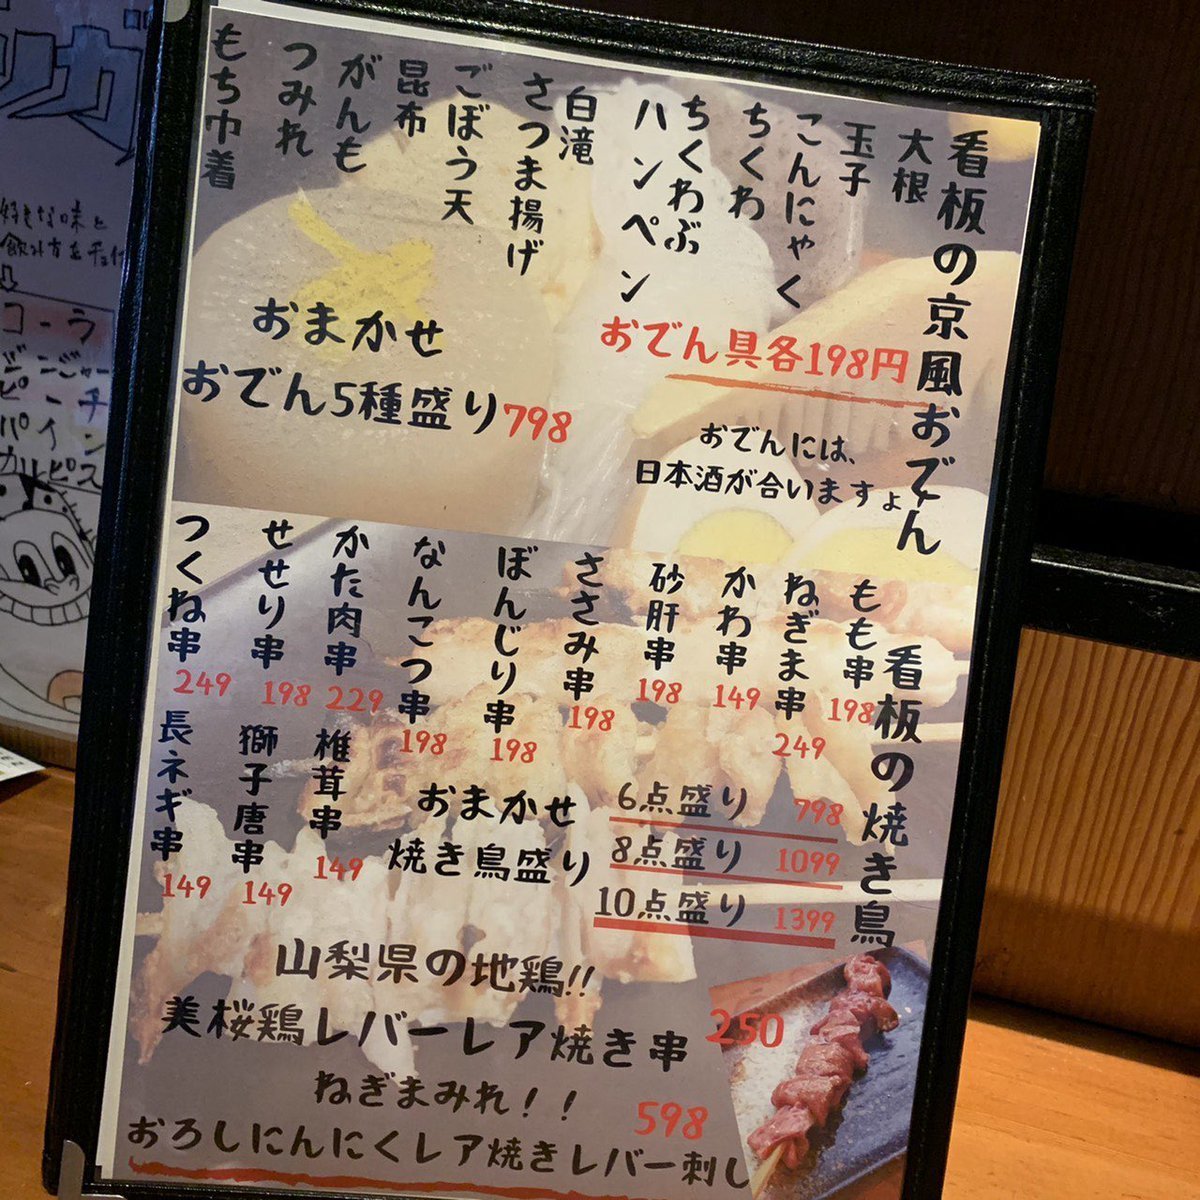 看板の京風おでん
大根
玉子
こんにゃく
ちくわ
ちくわぶ
ハンペン
白滝
さつま揚げ
ごぼう天
昆布
がんも
つみれ
もち巾着
おでん具各198円
おまかせ
おでん5種盛り798
おでんには、
日本酒が合いますょ
看板の焼き鳥
もも串 198
ねぎま串 249
かわ串 149
砂肝串 198
ささみ串 198
ぼんじり串 198
なんこつ串 198
かた肉串 229
せせり串 198
つくね串 249
椎茸串 149
獅子唐串 149
長ネギ串 149
おまかせ
焼き鳥盛り
6点盛り 798
8点盛り 1099
10点盛り 1399
山梨県の地鶏!!
美桜鶏レバーレア焼き串 250
ねぎまみれ！！ 598
おろしにんにくレア焼きレバー刺し
好きな味と
コーラ
ジンジャー
ピーチ
パイン
カルピス